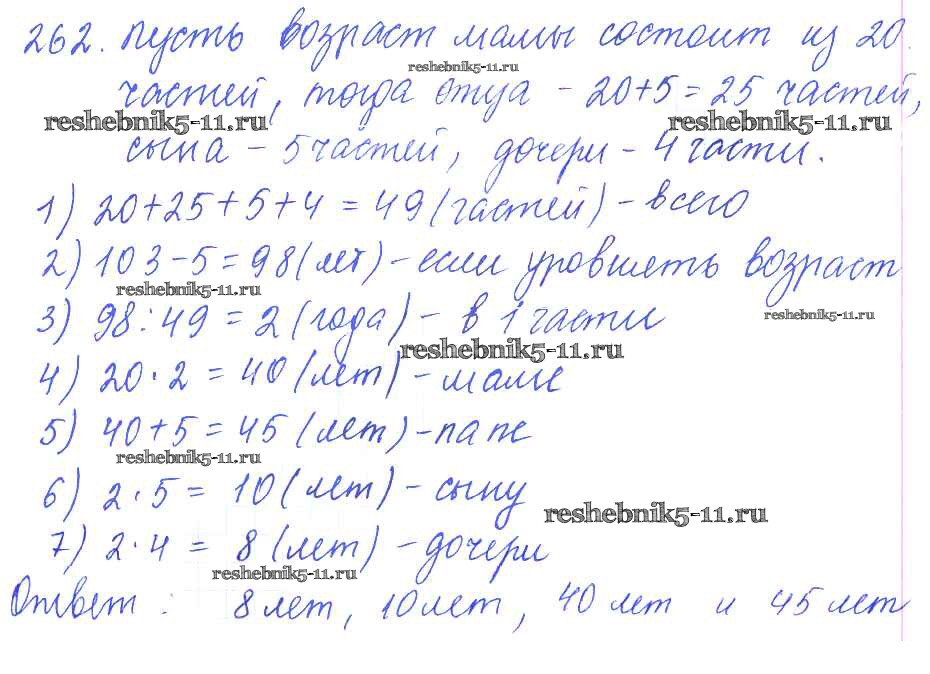 262. Пусть возраст мамы состоит из 20
reshebnik5-11.ru
частей, тогда отца - 20+5=25 частей,
reshebnik5-11.ru reshebnik5-11.ru
сына - 5 частей, дочери - 4 части.
1) 20+25+5+4=49 (частей) - всего
2) 103-5=98 (лет) - если уровнять возраст
reshebnik5-11.ru
3) 98:49=2 (года) - в 1 части
reshebnik5-11.ru
reshebnik5-11.ru
4) 20·2=40 (лет) - маме
5) 40+5=45 (лет) - папе
reshebnik5-11.ru
6) 2·5=10 (лет) - сыну
reshebnik5-11.ru
7) 2·4=8 (лет) - дочери
reshebnik5-11.ru
Ответ: 8 лет, 10 лет, 40 лет и 45 лет